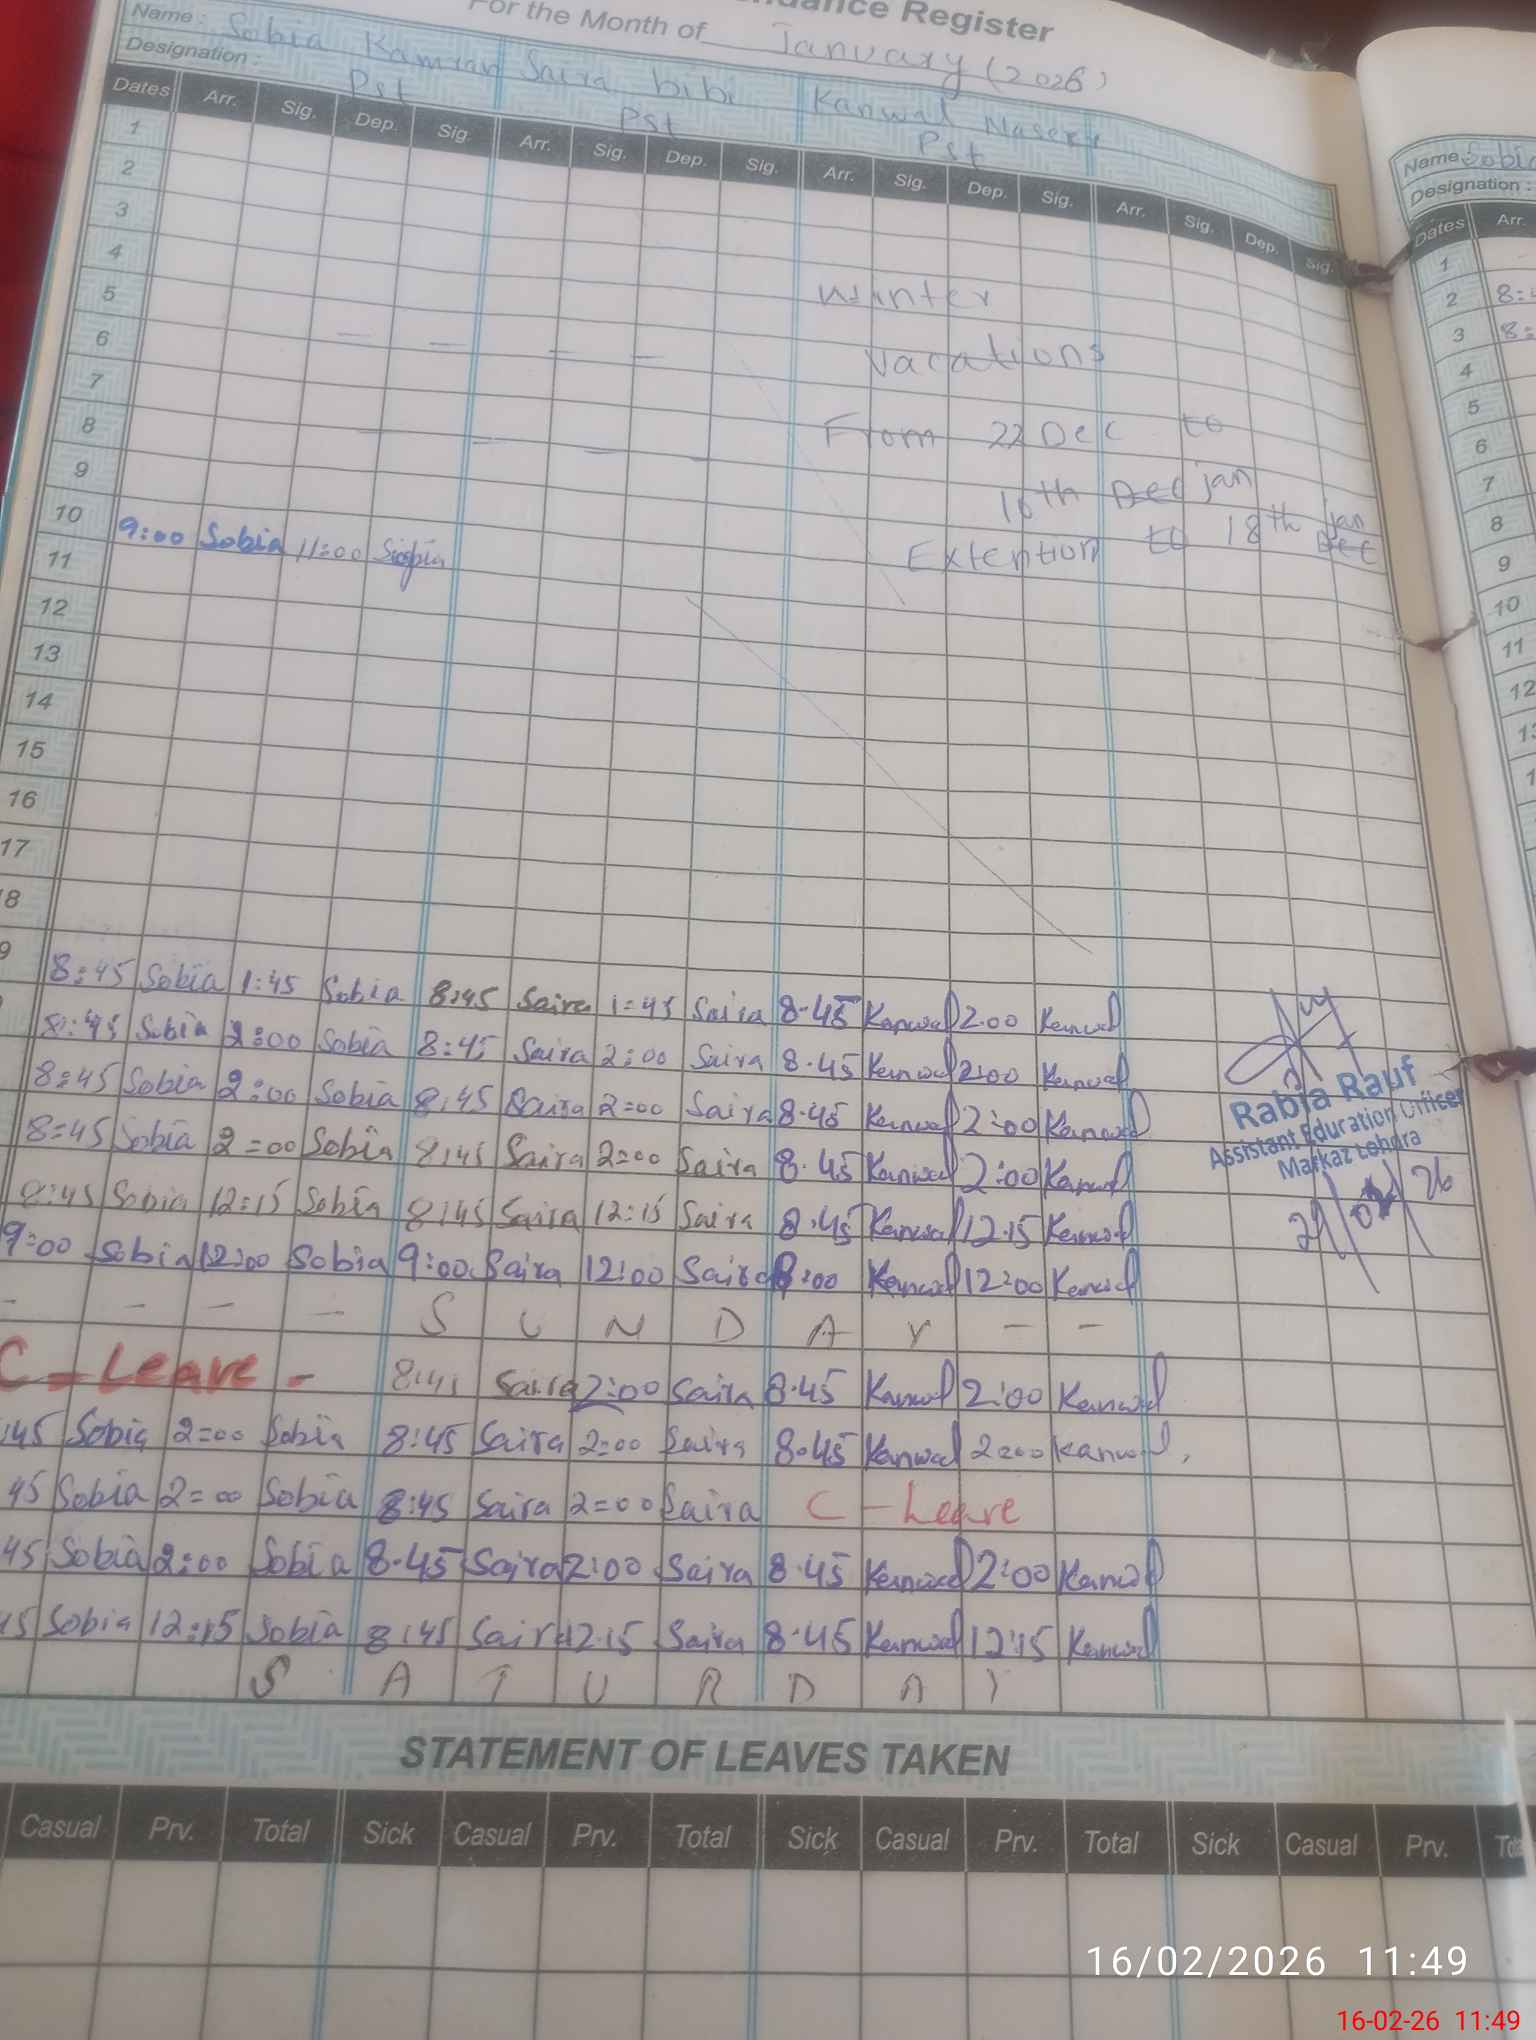 ance Register
For the Month of January (2026)
Name: Sobia Kamran Saira bibi Kanwal Naseer
Designation: Pst Pst Pst
Dates Arr. Sig. Dep. Sig. Arr. Sig. Dep. Sig. Arr. Sig. Dep. Sig. Arr. Sig. Dep. Sig.
1
2
3
4
5 Winter
6 — — — — Vacations
7
8 — — — — From 22 Dec to
9 10th Dec jan
10 9:00 Sobia 11:00 Sobia Extention to 18th jan Dec
11
12
13
14
15
16
17
18
9 8:45 Sobia 1:45 Sobia 8:45 Saira 1:45 Saira 8.45 Kanwal 2.00 Kanwal
8:45 Sobia 2:00 Sobia 8:45 Saira 2:00 Saira 8.45 Kanwal 2:00 Kanwal
8:45 Sobia 2:00 Sobia 8:45 Saira 2=00 Saira 8.45 Kanwal 2:00 Kanwal
8=45 Sobia 2=00 Sobia 8:45 Saira 2=00 Saira 8.45 Kanwal 2:00 Kanwal
8:45 Sobia 12:15 Sobia 8:45 Saira 12:15 Saira 8.45 Kanwal 12.15 Kanwal
9:00 Sobia 12:00 Sobia 9:00 Saira 12:00 Saira :00 Kanwal 12:00 Kanwal
- - - - S U N D A Y - -
C - Leave - 8:45 Saira 2:00 Saira 8.45 Kanwal 2:00 Kanwal
:45 Sobia 2=00 Sobia 8:45 Saira 2=00 Saira 8.45 Kanwal 2=00 Kanwal
45 Sobia 2=00 Sobia 8:45 Saira 2=00 Saira C - Leave
45 Sobia 2:00 Sobia 8.45 Saira 2:00 Saira 8.45 Kanwal 2:00 Kanwal
45 Sobia 12:15 Sobia 8:45 Saira 12.15 Saira 8.45 Kanwal 12:15 Kanwal
S A T U R D A Y
Rabia Rauf
Assistant Education Officer
Markaz Lohdra
STATEMENT OF LEAVES TAKEN
Casual Prv. Total Sick Casual Prv. Total Sick Casual Prv. Total Sick Casual Prv.
Name Sobia
Designation:
Dates Arr.
1
2 8:
3 8:
4
5
6
7
8
9
10
11
12
16/02/2026 11:49
16-02-26 11:49